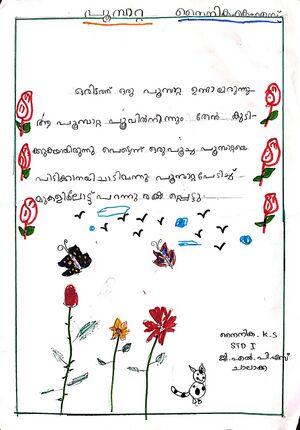 പൂമ്പാറ്റ
ഒരിടത്ത് ഒരു പൂമ്പാറ്റ ഉണ്ടായിരുന്നു
ആ പൂമ്പാറ്റ പൂവിൽനിന്നും തേൻ കുടി-
ക്കുകയായിരുന്നു പെട്ടെന്ന് ഒരു പൂച്ച പൂമ്പാറ്റയെ
പിടിക്കാനായി ചാടിവന്നു പൂമ്പാറ്റ പേടിച്ച്
മുകളിലോട്ട് പറന്നു രക്ഷപ്പെട്ടു
നൈനിക . K . S
STD I
ജി.എൽ.പി.എസ്
ചാലാക്ക